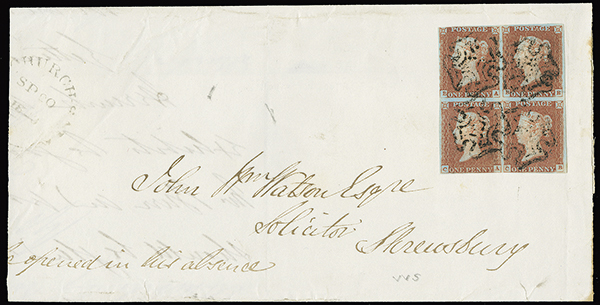 POSTAGE POSTAGE
ONE PENNY A ONE PENNY
POSTAGE POSTAGE
C ONE PENNY A C ONE PENNY B
John Wm Watson Esqre
Solicitor
Shrewsbury
opened in his absence